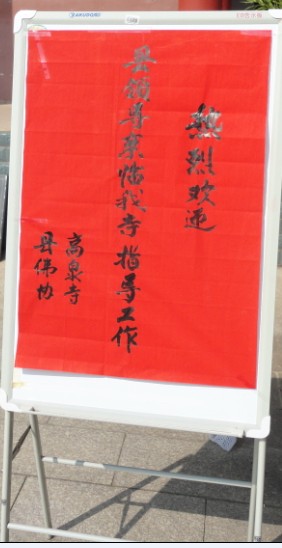 热烈欢迎
县领导莅临我寺指导工作
高泉寺
县佛协